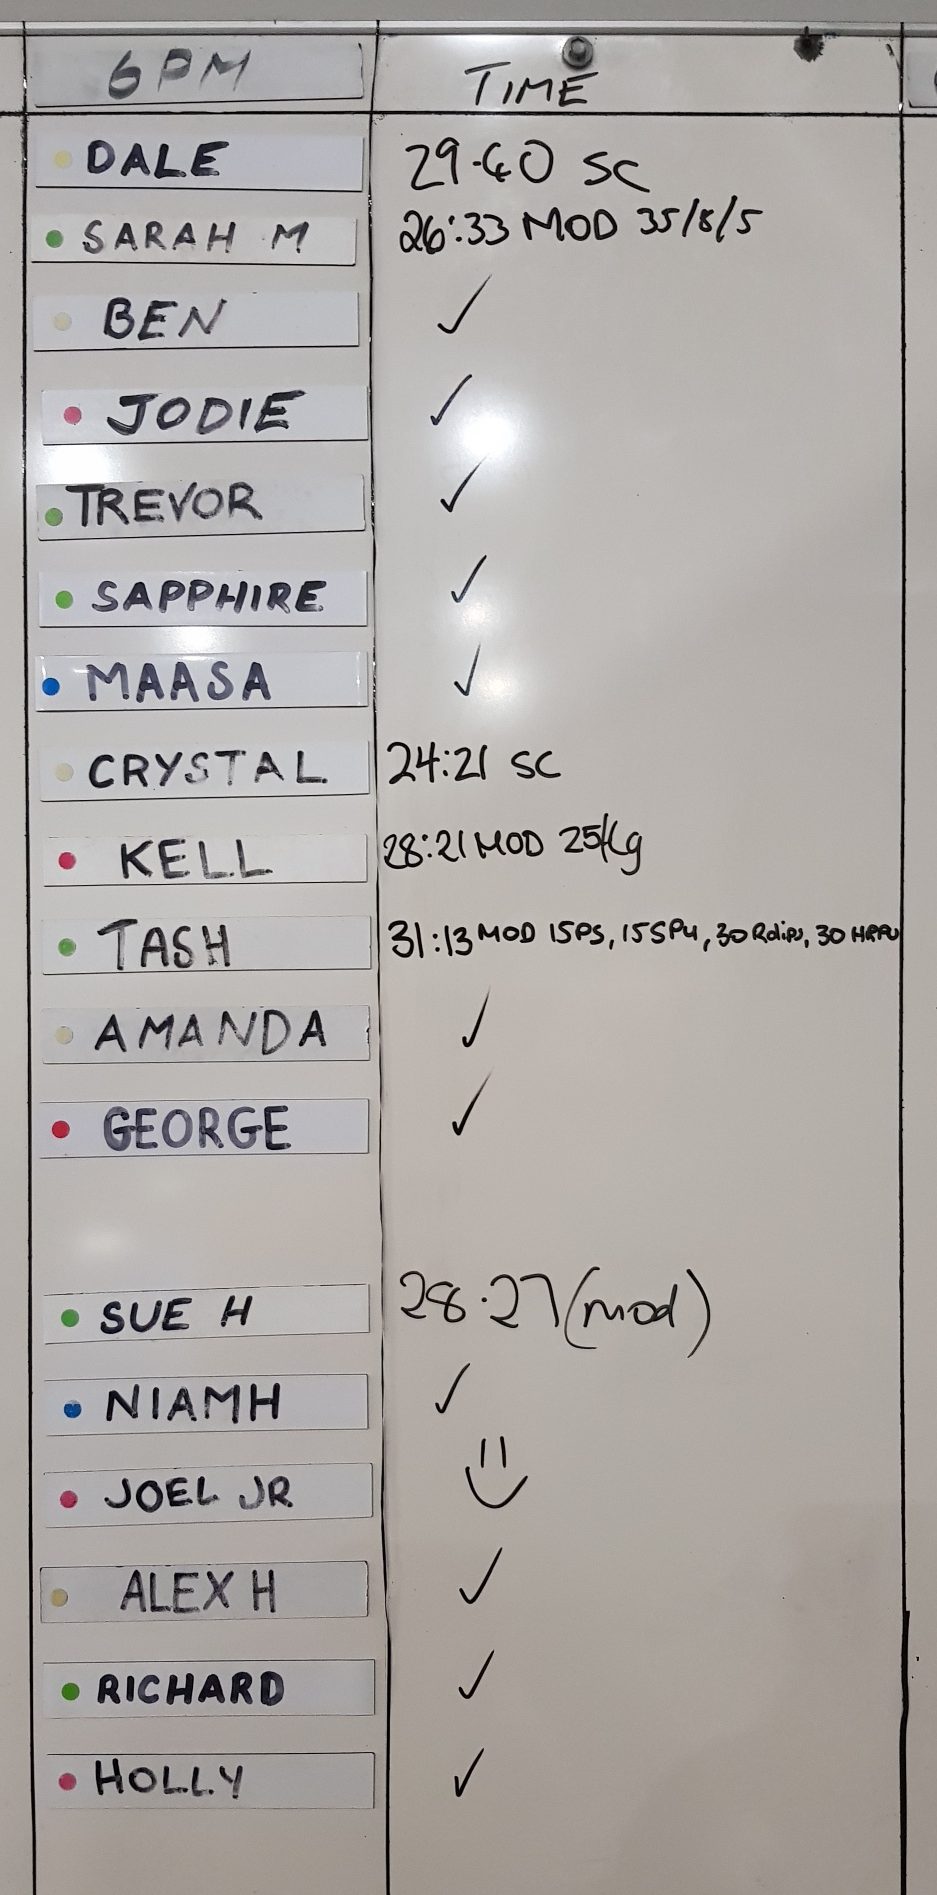 6PM TIME
DALE 29.40 SC
SARAH M 26:33 MOD 35/8/5
BEN ✓
JODIE ✓
TREVOR ✓
SAPPHIRE ✓
MAASA ✓
CRYSTAL 24:21 SC
KELL 28:21 MOD 25kg
TASH 31:13 MOD 15PS, 15SPU, 30 Rdips, 30 HRPU
AMANDA ✓
GEORGE ✓
SUE H 28.27 (mod)
NIAMH ✓
JOEL JR
ALEX H ✓
RICHARD ✓
HOLLY ✓